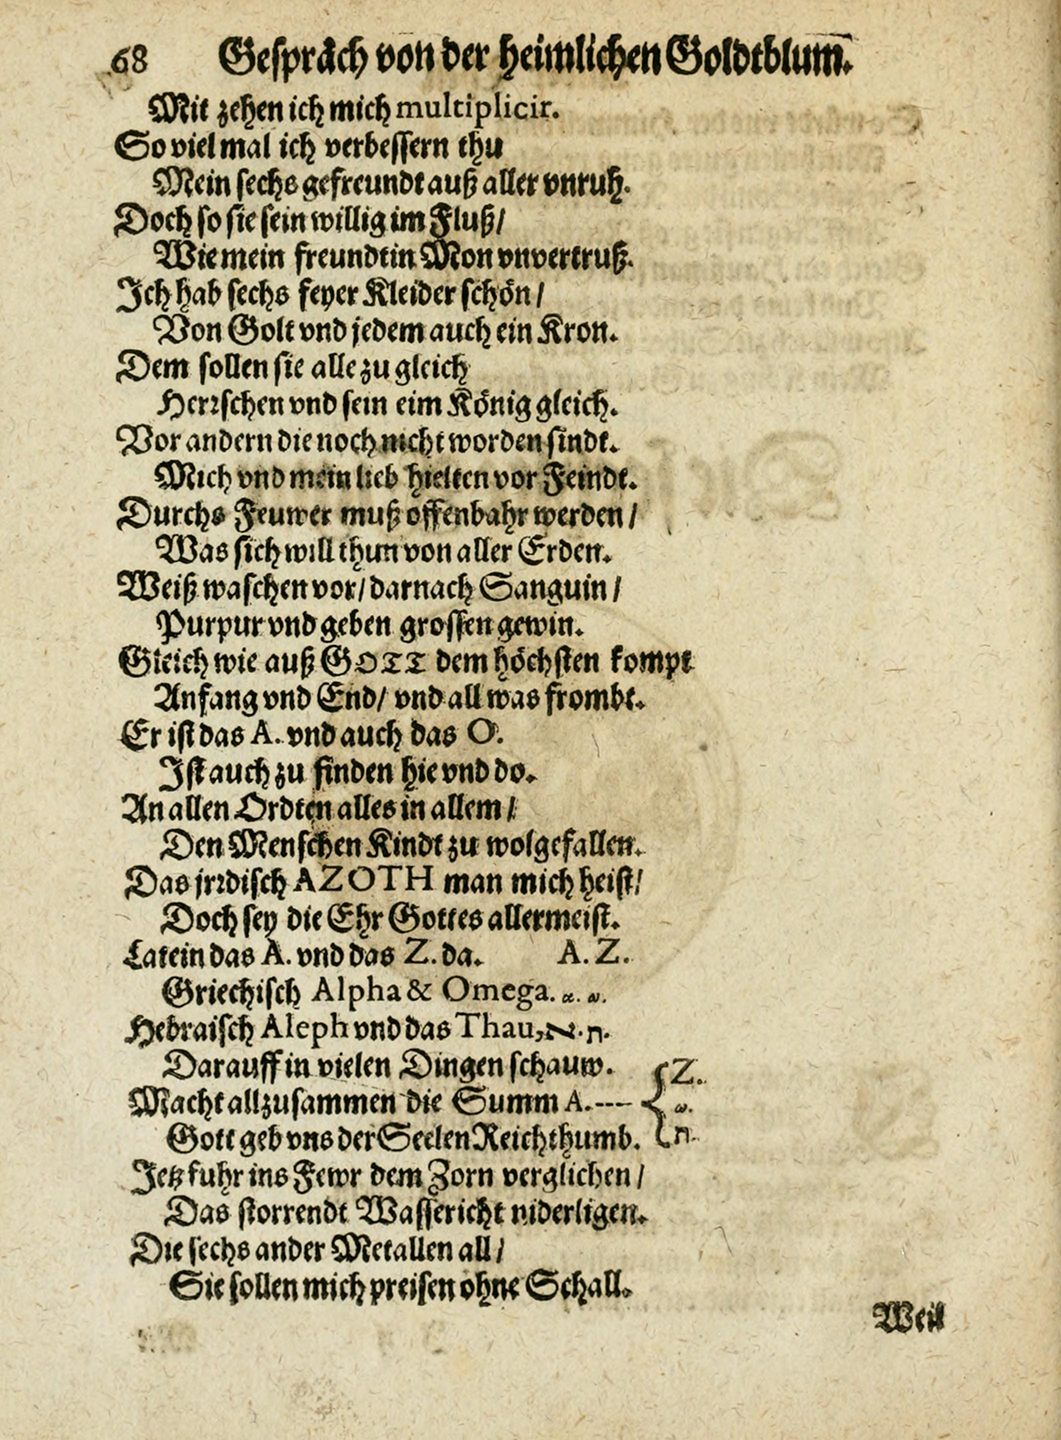 68 Gespräch von der heimlichen Goldtblum.
Mit zehen ich mich multiplicir.
So viel mal ich verbessern thu
Mein sechs gefreundt auß aller vnruh.
Doch so sie sein willig im Fluß/
Wie mein freundtin Mon vnvertruß.
Ich hab sechs feyer Kleider schön/
Von Golt vnd jedem auch ein Kron.
Dem sollen sie alle zu gleich
Herrschen vnd sein eim König gleich.
Vor andern die noch nicht worden sindt.
Mich vnd mein lieb hielten vor Feindt.
Durchs Feuwer muß offenbahr werden/
Was sich will thun von aller Erden.
Weiß waschen vor/ darnach Sanguin/
Purpur vnd geben grossen gewin.
Gleich wie auß GOTT dem höchsten kompt
Anfang vnd End/ vnd all was frombt.
Er ist das A. vnd auch das O.
Ist auch zu finden hie vnd do.
An allen Ordten alles in allem/
Den Menschen Kindt zu wolgefallen.
Das jrrdisch AZOTH man mich heist/
Doch sey die Ehr Gottes allermeist.
Latein das A. vnd das Z. da. A. Z.
Griechisch Alpha & Omega. α. ω.
Hebraisch Aleph vnd das Thau, א. ת.
Darauff in vielen Dingen schauw. { Z.
Macht allzusammen die Summ A. ---- { ω.
Gott geb vns der Seelen Reichthumb. { ת.
Jetz fuhr ins Fewr dem Zorn verglichen/
Das storrendt Wassericht niderligen.
Die sechs ander Metallen all/
Sie sollen mich preisen ohne Schall.
Weil